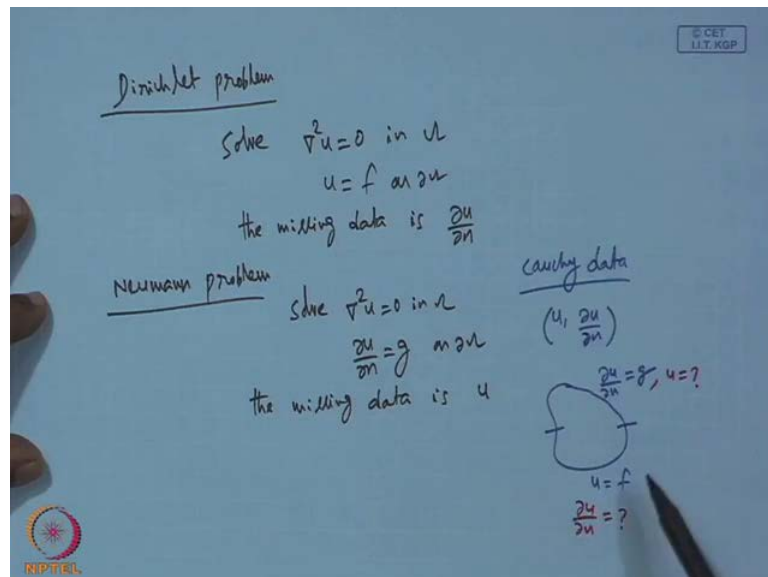 © CET
I.I.T. KGP
Dirichlet problem
Solve ∇²u=0 in Ω
u = f on ∂Ω
the missing data is ∂u/∂n
Neumann problem
Solve ∇²u=0 in Ω
∂u/∂n = g on ∂Ω
the missing data is u
Cauchy data
(u, ∂u/∂n)
∂u/∂n = g, u=?
u = f
∂u/∂n = ?
NPTEL